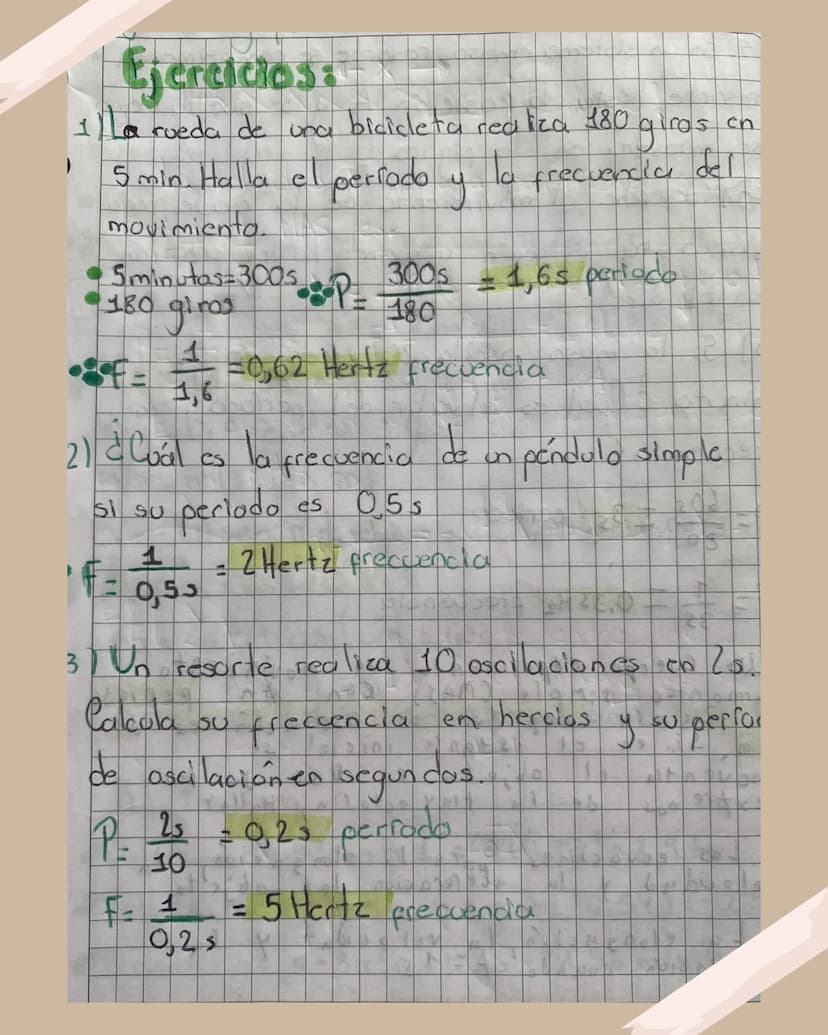 Ejercicios:
1) La rueda de una bicicleta realiza 180 giros en
5 min. Halla el periodo y la frecuencia del
movimiento.
5minutos=300s P= 300s/180 = 1,6s periodo
180 giros
F= 1/1,6 =0,62 Hertz frecuencia
2) ¿Cuál es la frecuencia de un péndulo simple
si su periodo es 0,5s
F= 1/0,5s = 2Hertz frecuencia
3) Un resorte realiza 10 oscilaciones en 2s.
Calcula su frecuencia en hercios y su perío
de oscilación en segundos.
P= 2s/10 = 0,2s período
F= 1/0,2s = 5 Hertz frecuencia